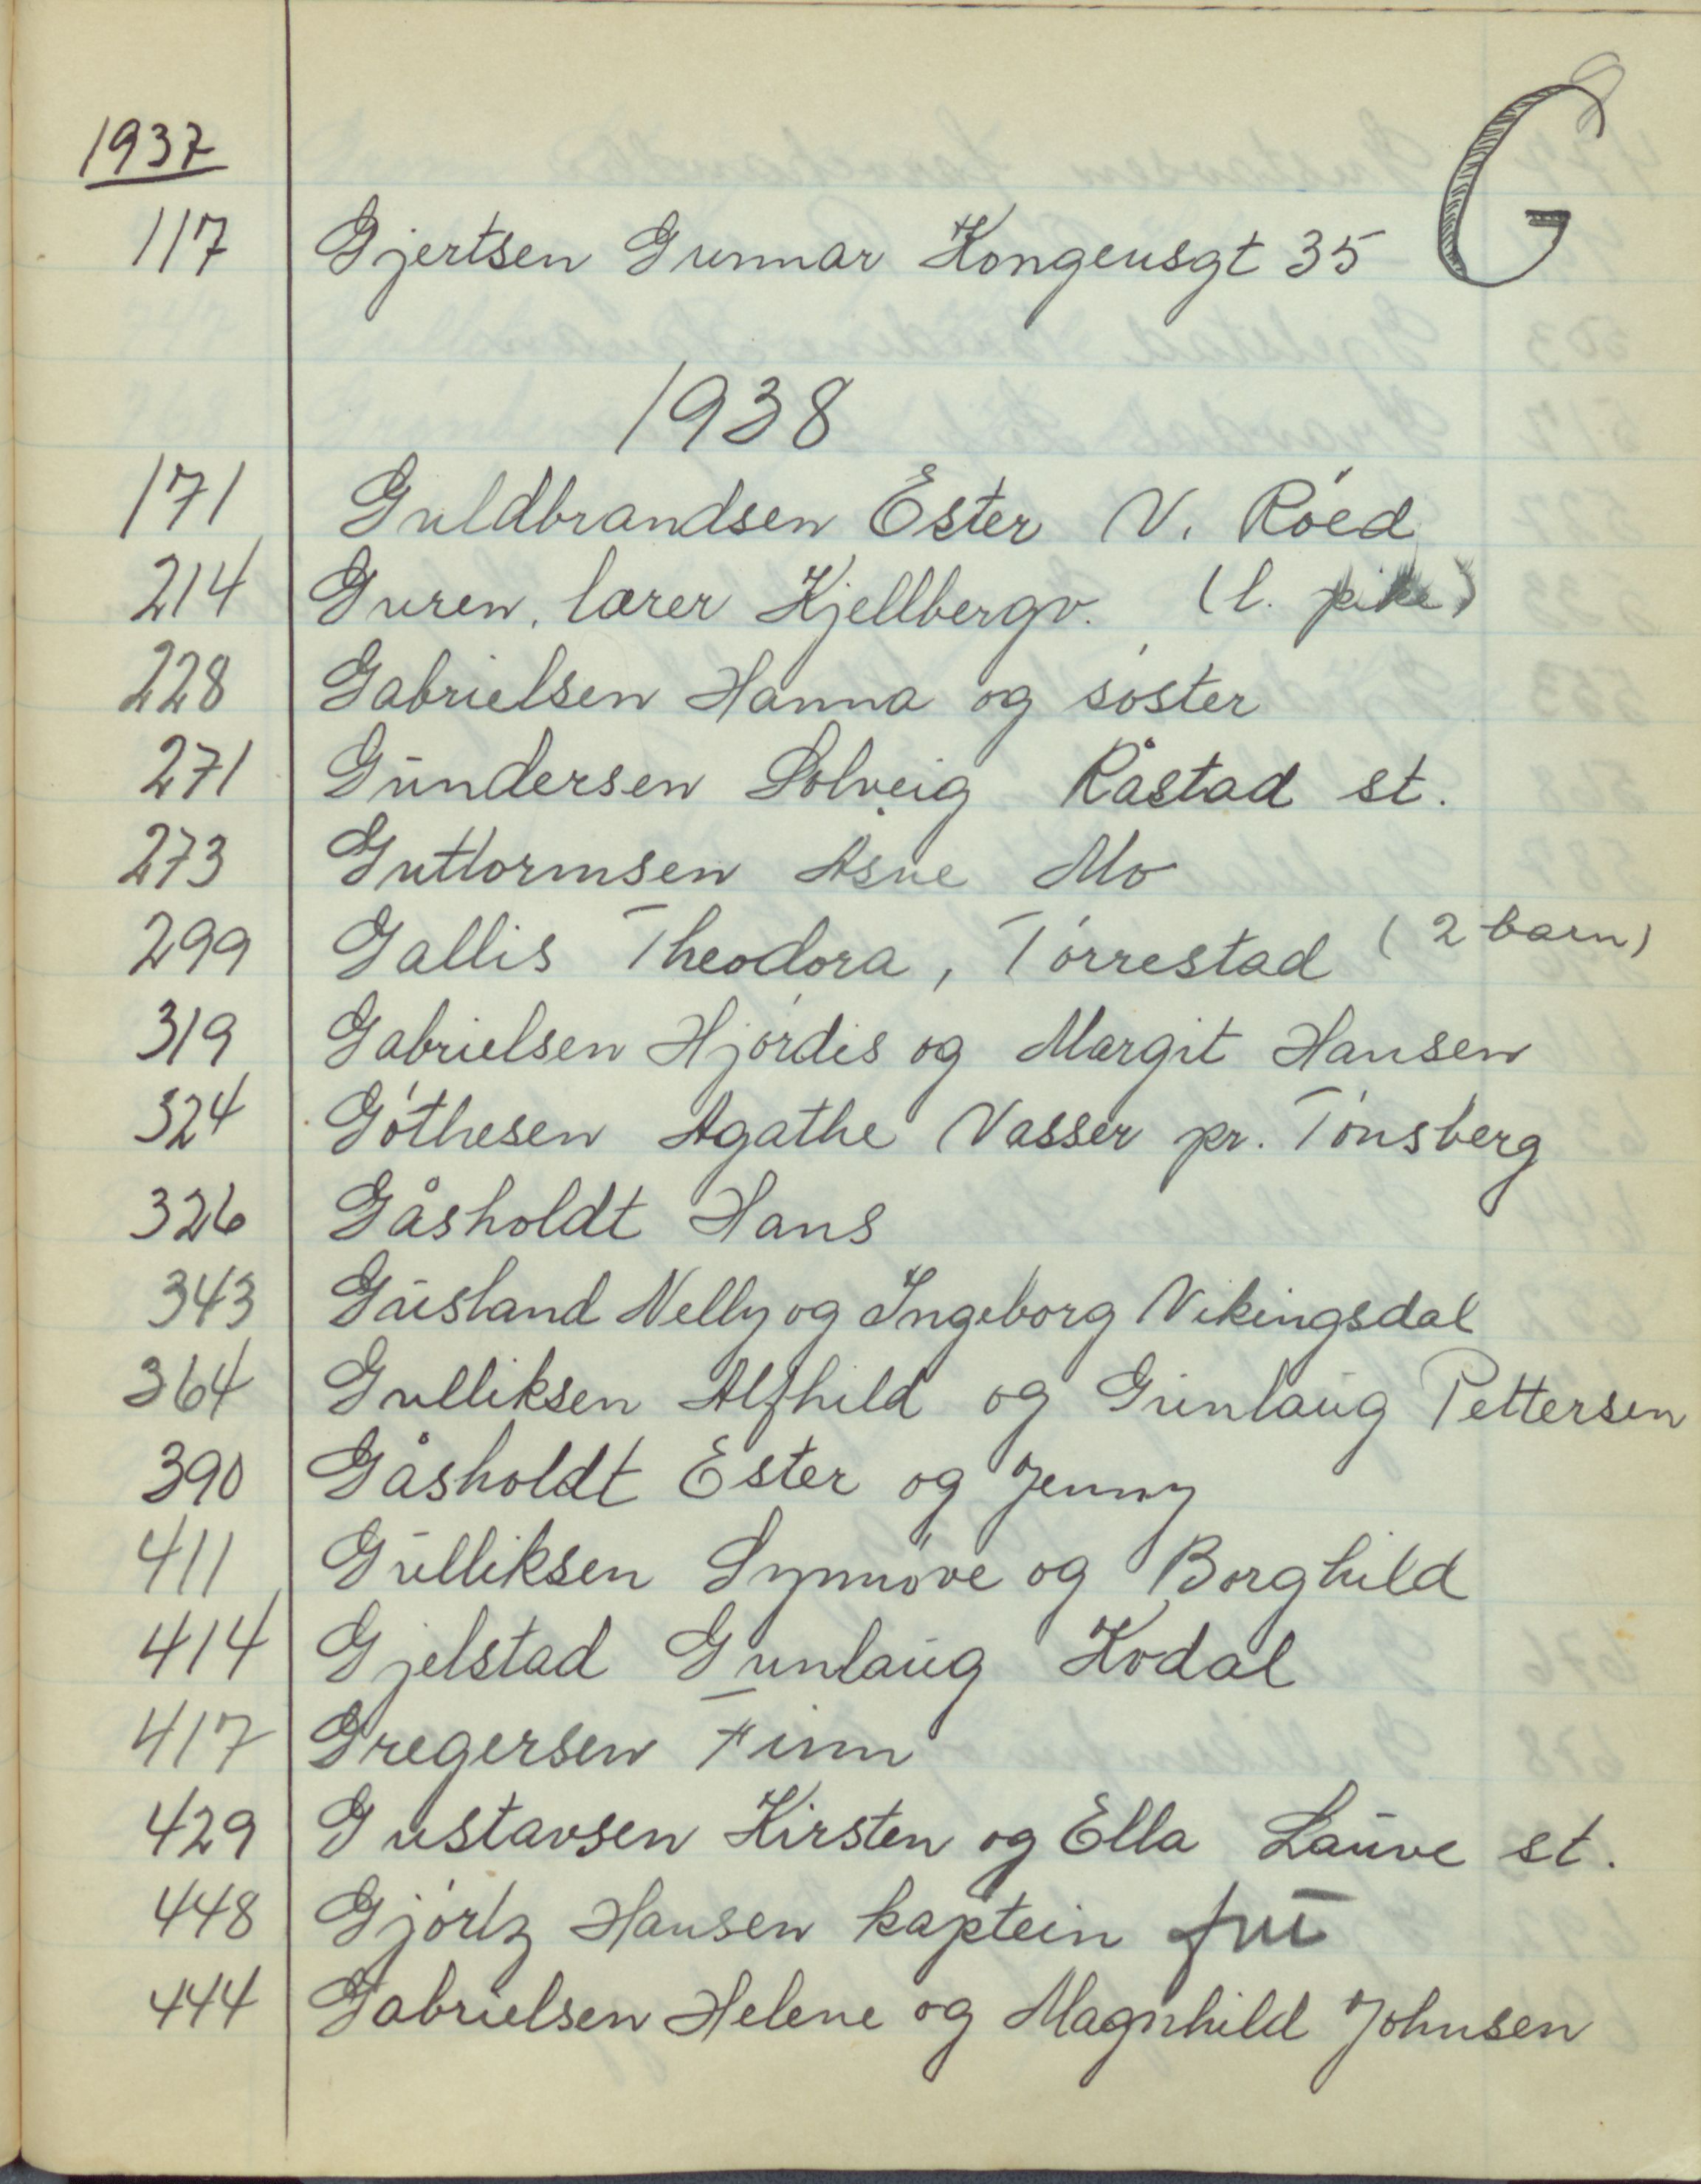 G
1937
117 Gjertsen Gunnar Kongensgt 35
1938
171 Guldbrandsen Ester V. Róed
214 Guren, lærer Kjellbergv. (l. pike)
228 Gabrielsen Hanna og sóster
271 Gundersen Solveig Råstad st.
273 Guttormsen Asne Mo
299 Gallis Theodora, Tórrestad (2 barn)
319 Gabrielsen Hjórdis og Margit Hansen
324 Góthesen Agathe Vasser pr. Tónsberg
326 Gåsholdt Hans
343 Gausland Nelly og Ingeborg Vikingsdal
364 Gulliksen Alfhild og Gunlaug Pettersen
390 Gåsholdt Ester og Jenny
411 Gulliksen Synnóve og Borghild
414 Gjelstad Gunlaug Kodal
417 Gregersen Finn
429 Gustavsen Kirsten og Ella Lauve st.
448 Gjórtz Hansen kaptein fru
444 Gabrielsen Helene og Magnhild Johnsen